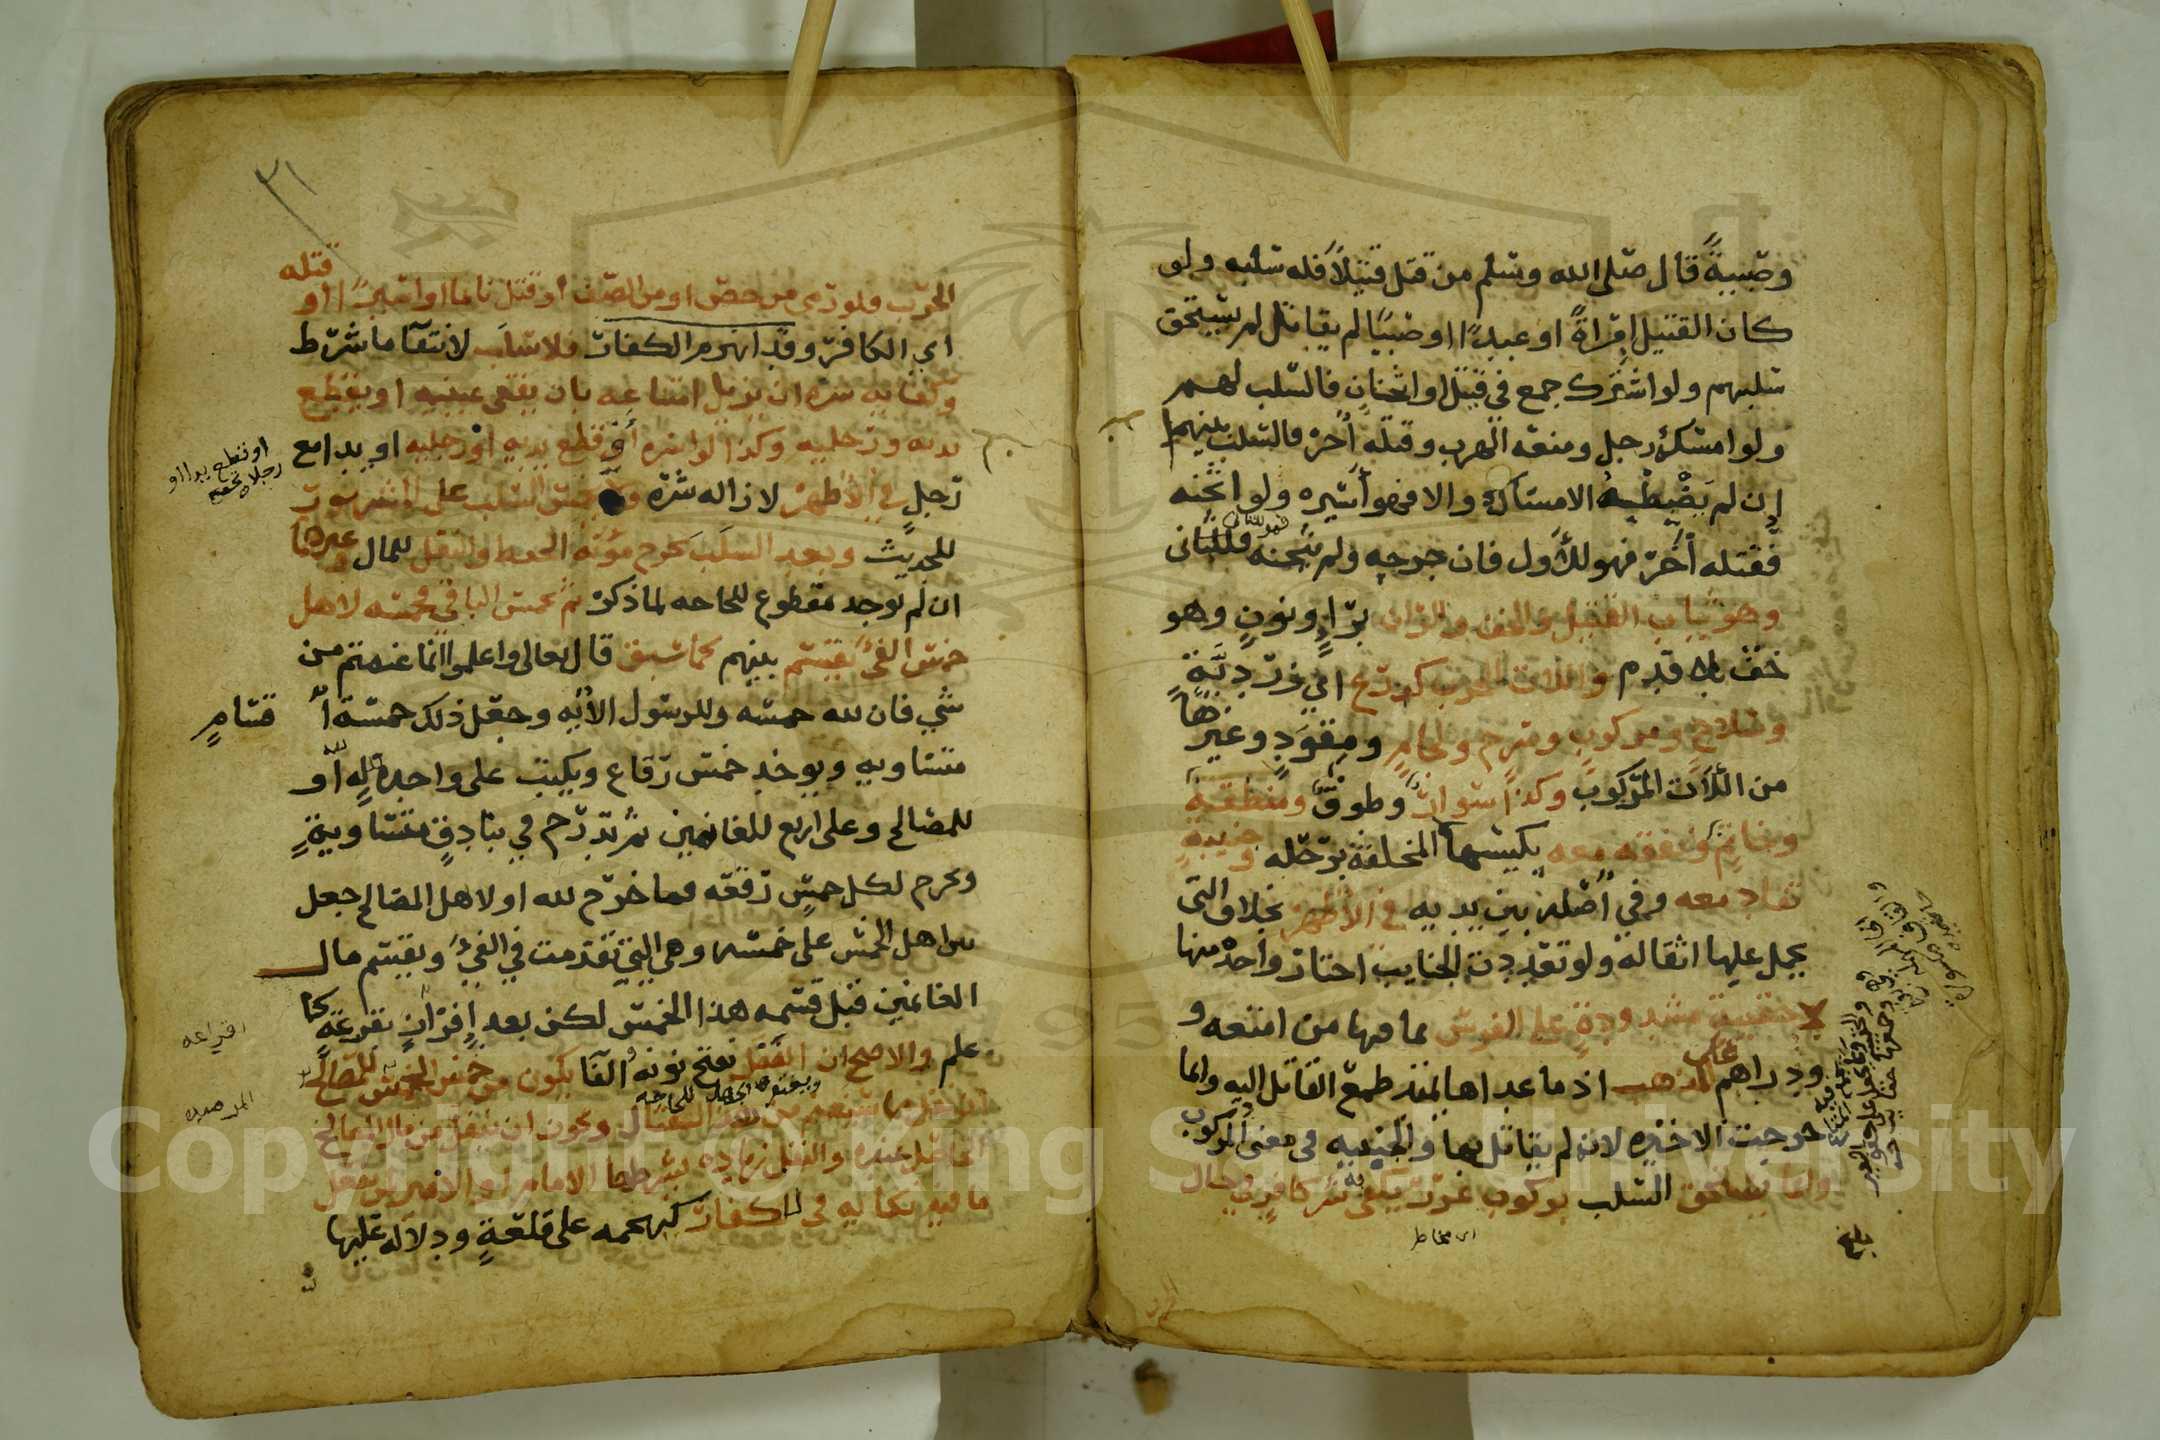 وصبيةً قال صلى الله وسلم من قتل قتيلاً فله سلبه ولو
كان القتيل امرأةً او عبدًا او صبيًا لم يقاتل لم يستحق
سلبهم ولو اشترك جمع في قتل او اثخان فالسلب لهم
ولو امسكه رجل ومنعه الهرب وقتله آخر فالسلب بينهما
إن لم يَضْبِطْهُ الامساك والا فهو أسيره ولو اثخنه
فقتله آخر فهو للأول فان جرحه ولم يثخنه فللثاني
وهو ثياب القتيل والخف والران برَاءٍ ونونٍ وهو
خف بلا قدم والات الحرب كدرع اي زرديةٍ
وسلاحٍ ومركوبٍ وسرجٍ ولجامٍ ومِقوَدٍ وغيرها
من الآت المركوب وكذا سوارٌ وطوقٌ ومنطقة
وخاتم ونفقه معه بكيسها المخلفة برحله وجنيبةٍ
تقاد معه وفي أصله بين يديه في الأظهر بخلاف التي
يحمل عليها اثقاله ولو تعددت الجنايب اختار واحدة منها
لا حقيبة مشدودةٍ على الفرس بما فيها من امتعه و
ودراهم على المذهب اذ ما عداها يمتد طمع القاتل اليه وانما
خرجت الاخيره لانه لم يقاتل بها والجنيبه في معنى المركوب
وانما يستحق السلب بركوب غرر يكفي به شر كافر في حال
اى مخاطر
بلغ
الحرب
٣١
الحرب فلو رمى من حصن او من الصف او قتل نائما او اسيرًا او قتله
اي الكافر وقد انهزم الكفار فلا سلب لانتفآ ما شرط
وكفايه شره ان يزيل امتناعه بان يفقى عينيه او يقطع
يديه ورجليه وكذا لو اسره أو قطع يديه او رجليه او يدا مع
رجلٍ في الأظهر لازاله شره ولا يخمس السلب على المشهور
للحديث وبعد السلَب تخرج مؤنه الحفظ والنقل للمال وغيرهما
ان لم يوجد متطوع للحاجه لما ذكر ثم يخمس الباقي فخمسه لاهل
خمس الفيء يقسم بينهم كما سبق قال تعالى واعلموا انما غنمتم من
شي فان لله خمسه وللرسول الأيه وجعل ذلك خمسة
متساويه ويوخذ خمس رقاع ويكتب على واحده لله أو
للمصالح وعلى اربع للغانمين ثم تدرج في بنادقٍ متساويةٍ
وتخرج لكل خمسٍ رقعه فما خرج لله او لاهل المصالح جعل
بين اهل الخمس على خمسه وهي التي تقدمت في الفيء ويقسم مال
الغانمين قبل قسمه هذا الخمس لكن بعد إفرازٍ بقرعةٍ كما
علم والاصح ان النفل بفتح نونه والفآ يكون من خمس الخمس للمصالح
ان نفل مما سيغنم من هذا القتال ويجوز ان ينفل من مال المصالح
الحاصل عنده والنفل زياده يشرطها الامام او الامير لمن يفعل
ما فيه نكايه في الكفار كتهجمه على قلعةٍ ودلاله عليها
او قطع يدا او